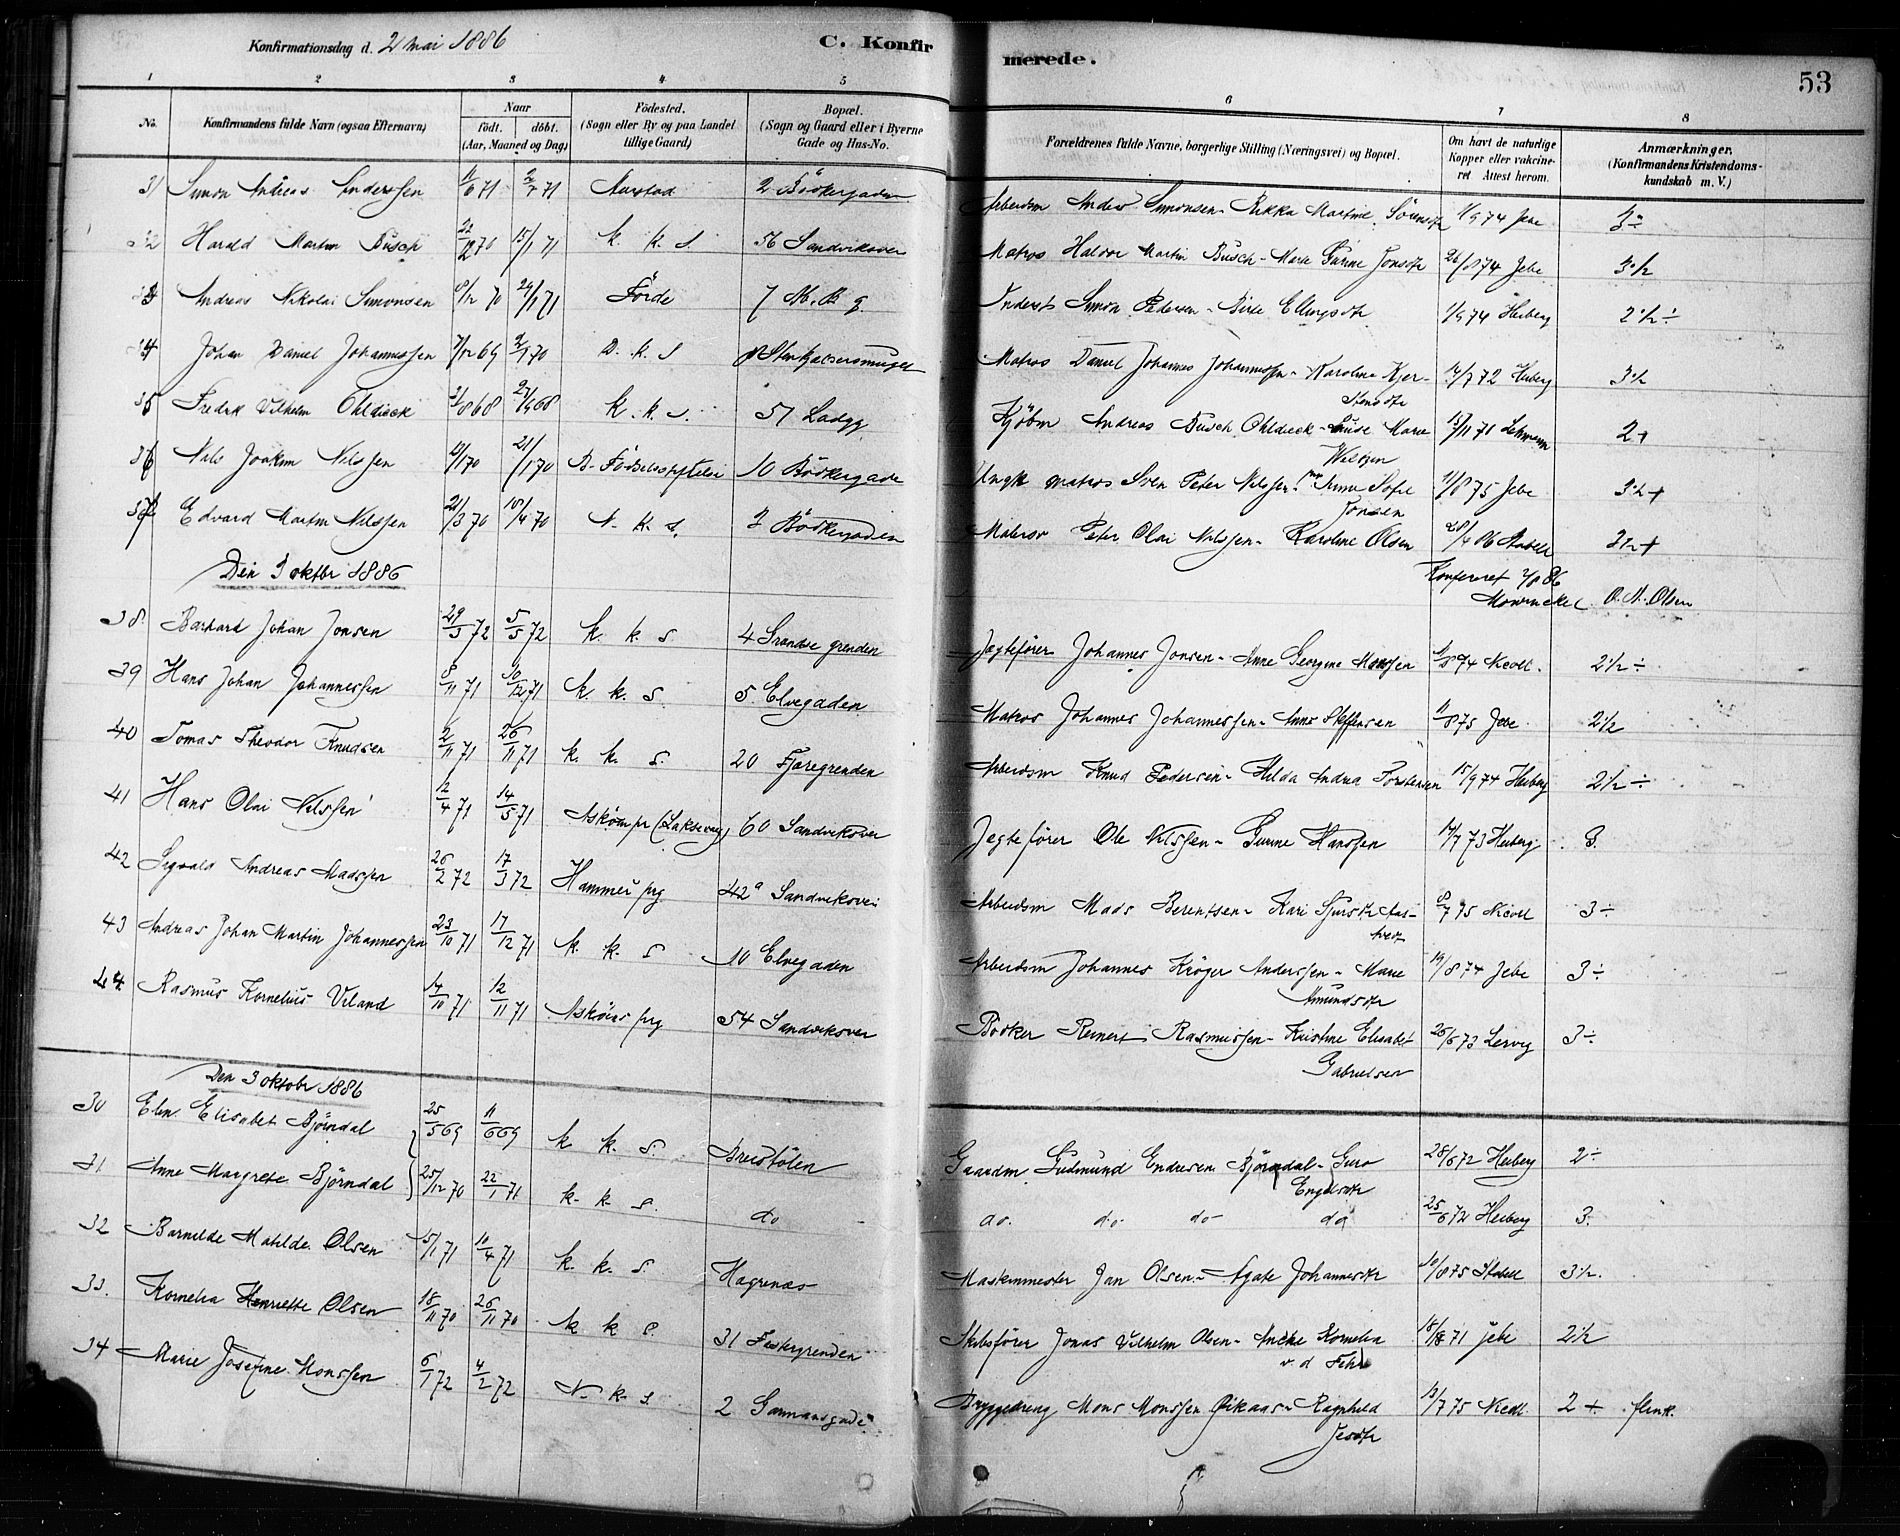 Konfirmationsdag d. 2 Mai 1886 C. Konfirmerede. 53
1 2 3 4 5 6 7 8
No. Konfirmandens fulde Navn (ogsaa Efternavn) Naar født. døbt. (Aar, Maaned og Dag) Fødested. (Sogn eller By og paa Landet tillige Gaard) Bopæl. (Sogn og Gaard eller i Byerne Gade og Hus-No. Forældrenes fulde Navne, borgerlige Stilling (Næringsvei) og Bopæl. Om havt de naturlige Kopper eller vakcineret Attest herom. Anmærkninger. (Konfirmandens Kristendomskundskab m. V.)
31 Simon Andreas Anderssen 71 2/7 71 Aarstad 2 Bødkergaden Arbeidsm Anders Simonsen - Rikka Martine Sørensdtr 1/9 74 Jebe 3÷
32 Harald Martin Busch 22/12 70 15/1 71 k. k. s. 56 Sandviksvei Matros Haldor Martin Busch - Marte Jonsdtr 26/8 74 Jebe 3 1/2
33 Andreas Nikolai Simonsen 8/12 70 29/1 71 Førde 7 Inderst Simon Pedersen - Birte Ellingsdtr 1/9 74 Heiberg 2 1/2 ÷
34 Johan Daniel Johannessen 7/12 69 2/1 70 D. k. s Matros Daniel Johannes Johannessen - Karoline Kjerstensdtr 17/7 72 Heiberg 3 1/2
35 Fredrik Vilhelm Ohldieck 21/8 68 27/9 68 k. k. s. 57 Ladeg Kjøbm Andreas Busch Ohldieck - Marie Welsgen 13/11 71 Lehmann 2+
36 Nils Joakim Nilssen 12/1 70 21/1 70 B. Fødselsstiftelse 10 Bødkergade Ungk matros Sven Peter Nilssen - Sofie Jonsen 11/8 75 Jebe 3 1/2 +
37 Edvard Martin Nilssen 21/3 70 18/4 70 N. k. s. 3 Bødkergaden Peter Olai Nilssen - Karoline Olsen 28/4 86 2 1/2 +
Den 3 oktbr 1886
Konfereret 2/8 86 Mowinckel O. N. Olsen
38. Barhard Johan Jonsen 29/3 72 5/5 72 k. k. s 4 grenden Jægtefører Johannes Jonsen - Anne Georgine Monssen 74 Nicoll. 2 1/2 ÷
39 Hans Johan Johannessen 8/11 71 10/12 71 k. k. s. 5. Elvegaden Matros Johannes Johannessen - Anne Steffensen 11/8 75 Jebe 2 1/2
40 Tomas Theodor Knudsen 2/11 71 26/11 71 k. k. s. 20 Fjæregrenden Arbeidsm Knud Pedersen - Hilda Andrea Torstensen 15/9 74 Heiberg 2 1/2 ÷
41 Hans Olai Nilssen 12/4 71 14/5 71 Askøen pr (Laksevaag) 60 Sandviksvei Jægtefører Ole Nilssen - Gurine Hanssen 17/7 73 Heiberg 3.
42 Sigvald Andreas Madssen 26/2 72 17/3 72 Hammer prg 42a Sandviksvei Arbeidsm Mads Berentsen - Kari 8/7 75 Nicoll 3÷
43 Andreas Johan Martin Johannessen 23/10 71 17/12 71 k. k. s 10 Elvegaden Arbeidsm Johannes Krøger Anderssen - Marie Amundsdtr 19/8 74 Jebe 3÷
44. Rasmus Kornelius Viland 14/10 71 12/11 71 Askøens prg 54 Sandviksvei Bødker Reinert Rasmussen - Kristine Elisabet Gabrielsen 26/6 73 Lervig 3÷
Den 3 oktobr 1886
30 Elen Elisabet Bjørndal 25/5 69 11/6 69 k k s. Breistølen Gaardm Gudmund Endresen Bjørndal - Guro Engelsdtr 28/6 72 Heiberg 2÷
31 Anne Margrete Bjørndal 25/12 70 22/1 71 k. k s. do do. do do do 25/6 72 Heiberg 3.
32 Barnilde Matilde Olsen 15/1 71 10/4 71 k. k. s. Hægrenæs Maskinmester Jan Olsen - Agate Johannesdtr 10/8 75 Stabell 3 1/2.
33. Kornelia Henriette Olsen 18/11 70 26/11 70 k k s. 31 Fiskergrenden Skibsfører Jonas Vilhelm Olsen - Kornelia v d Fehr 71 Jebe 2 1/2
34 Marie Josefine Monssen 6/1 72 4/2 72 N. k. s. 2 Garmansgade Bryggedreng Mons Monssen Øikaas - Ragnhild 13/7 75 Nicoll. 2+ flink.